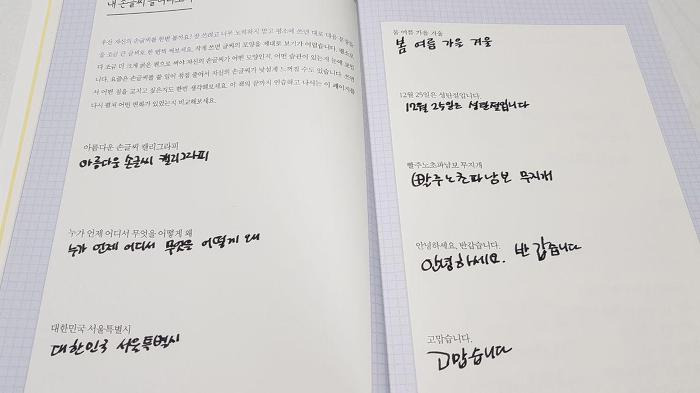 내 손글씨 돌아보기
우선 자신의 손글씨를 한번 볼까요? 잘 쓰려고 너무 노력하지 말고 평소에 쓰던 대로 다음 문장들
을 조금 큰 글씨로 한 번씩 써보세요. 작게 쓰면 글씨의 모양을 제대로 보기가 어렵습니다. 평소보
다 조금 더 크게 굵은 펜으로 써야 자신의 손글씨가 어떤 모양인지, 어떤 습관이 있는지 눈에 보입
니다. 요즘은 손글씨를 쓸 일이 부쩍 줄어서 자신의 손글씨가 낯설게 느껴질 수도 있습니다. 쓰면
서 어떤 점을 고치고 싶은지도 한번 생각해보세요. 이 책의 끝까지 연습하고 나서는 이 페이지를
다시 펼쳐 어떤 변화가 있었는지 비교해보세요.
아름다운 손글씨 캘리그라피
아름다운 손글씨 캘리그라피
누가 언제 어디서 무엇을 어떻게 왜
누가 언제 어디서 무엇을 어떻게 왜
대한민국 서울특별시
대한민국 서울특별시
봄 여름 가을 겨울
봄 여름 가을 겨울
12월 25일은 성탄절입니다.
12월 25일은 성탄절입니다
빨주노초파남보 무지개
빨주노초파남보 무지개
안녕하세요, 반갑습니다.
안녕하세요. 반갑습니다
고맙습니다.
고맙습니다